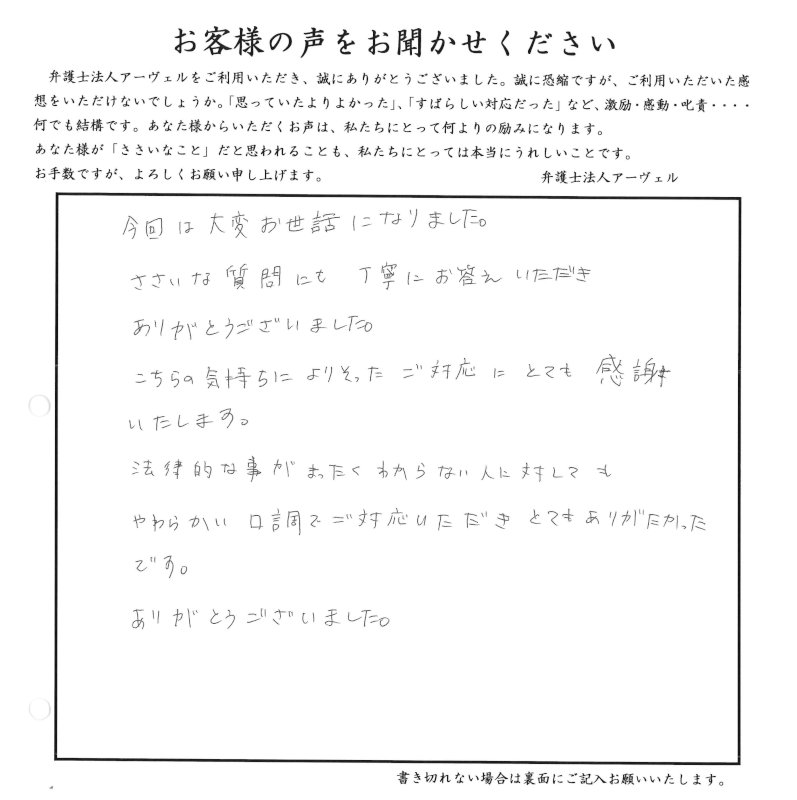 お客様の声をお聞かせください
弁護士法人アーヴェルをご利用いただき、誠にありがとうございました。誠に恐縮ですが、ご利用いただいた感
想をいただけないでしょうか。「思っていたよりよかった」、「すばらしい対応だった」など、激励・感動・叱責・・・・
何でも結構です。あなた様からいただくお声は、私たちにとって何よりの励みになります。
あなた様が「ささいなこと」だと思われることも、私たちにとっては本当にうれしいことです。
お手数ですが、よろしくお願い申し上げます。 弁護士法人アーヴェル
今回は大変お世話になりました。
ささいな質問にも丁寧にお答えいただき
ありがとうございました。
こちらの気持ちによりそったご対応にとても感謝
いたします。
法律的な事がまったくわからない人に対しても
やわらかい口調でご対応いただきとてもありがたかった
です。
ありがとうございました。
書き切れない場合は裏面にご記入お願いいたします。